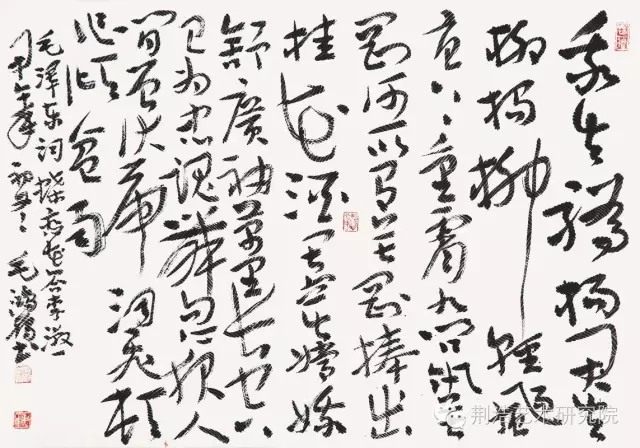 我失骄杨君失
柳杨柳轻飏
直上重霄九问讯吴
刚何所有吴刚捧出
桂花酒寂寞嫦娥
舒廣袖萬里长空
且为忠魂舞忽报人
间曾伏虎泪飞顿
作倾盆雨
毛泽东词蝶恋花答李淑一
甲午年初 毛鸿 书
荆浩艺术研究院